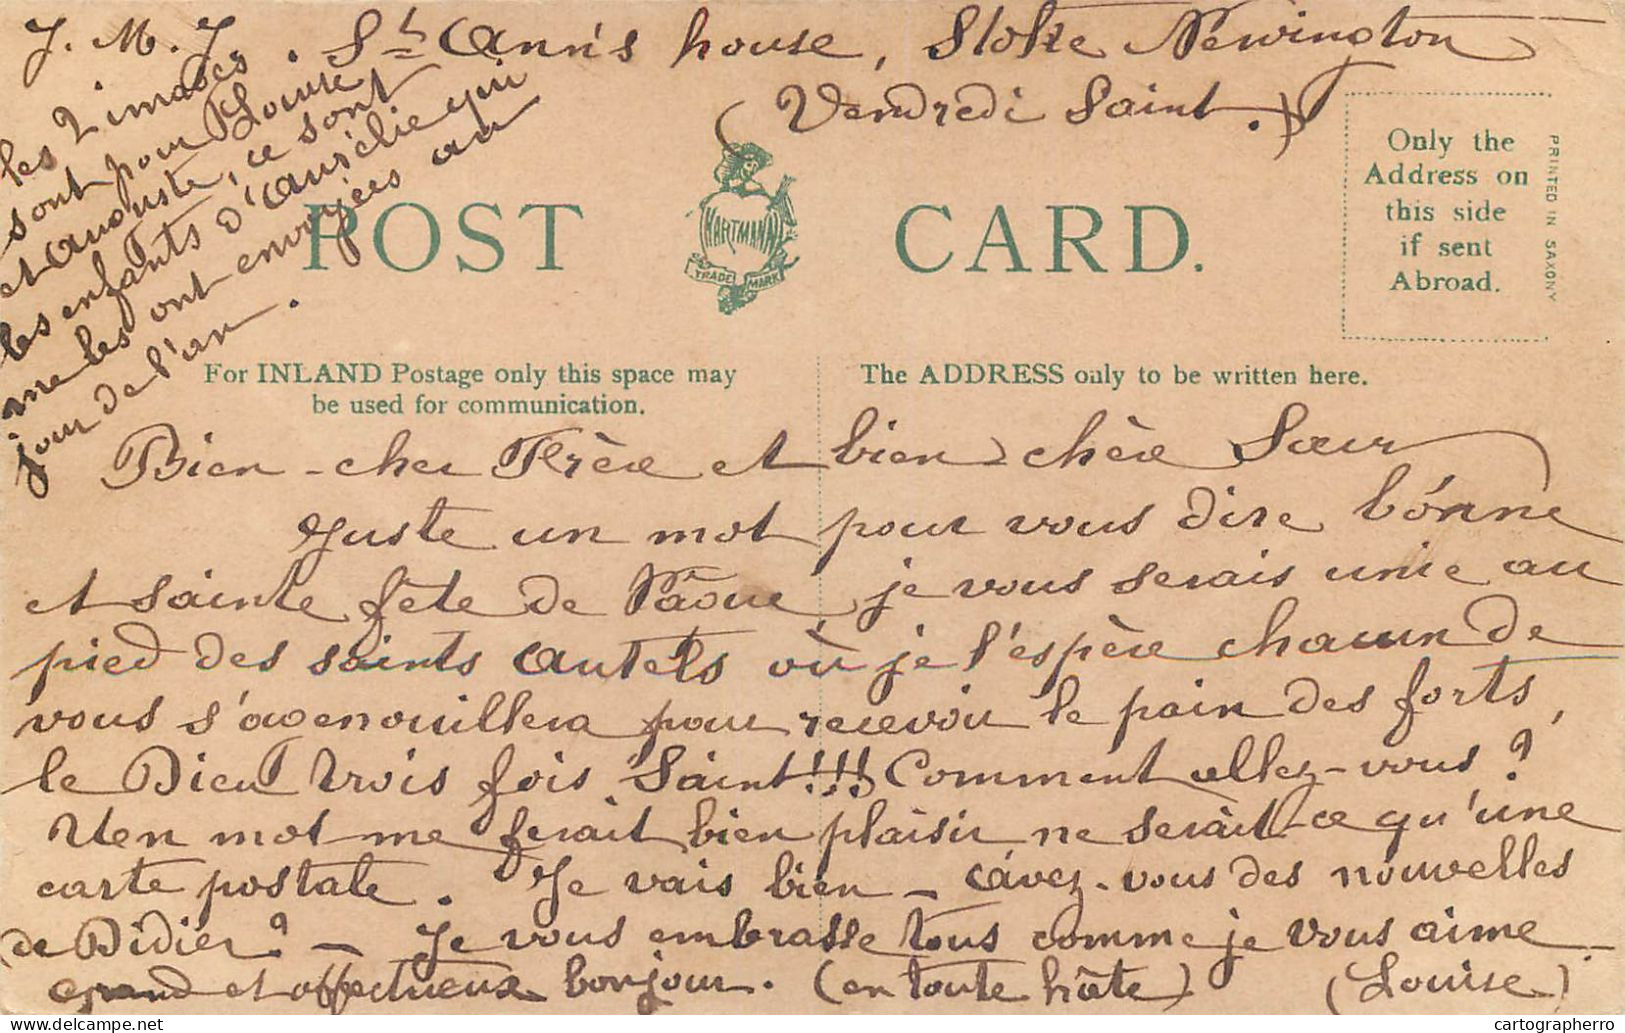 J. M. J. St Ann's house, Stoke Newington
(Vendredi Saint.)
les 2 images
sont pour Louise
et Auguste, ce sont
les enfants d'Aurélie qui
me les ont envoyées au
jour de l'an.
POST CARD.
HARTMANN
TRADE MARK
Only the
Address on
this side
if sent
Abroad.
PRINTED IN SAXONY
For INLAND Postage only this space may
be used for communication.
The ADDRESS only to be written here.
Bien-cher Frère et bien chère Sœur
Juste un mot pour vous dire bonne
et sainte fête de Pâque, je vous serais unie au
pied des saints Autels où je l'espère chacun de
vous s'agenouillera pour recevoir le pain des forts,
le Dieu trois fois Saint!!! Comment allez-vous?
Uen mot me ferait bien plaisir ne serait-ce qu'une
carte postale. Je vais bien – Avez-vous des nouvelles
de Didier? – Je vous embrasse tous comme je vous aime –
grand et affectueux bonjour. (en toute hâte) (Louise)
cartographerro